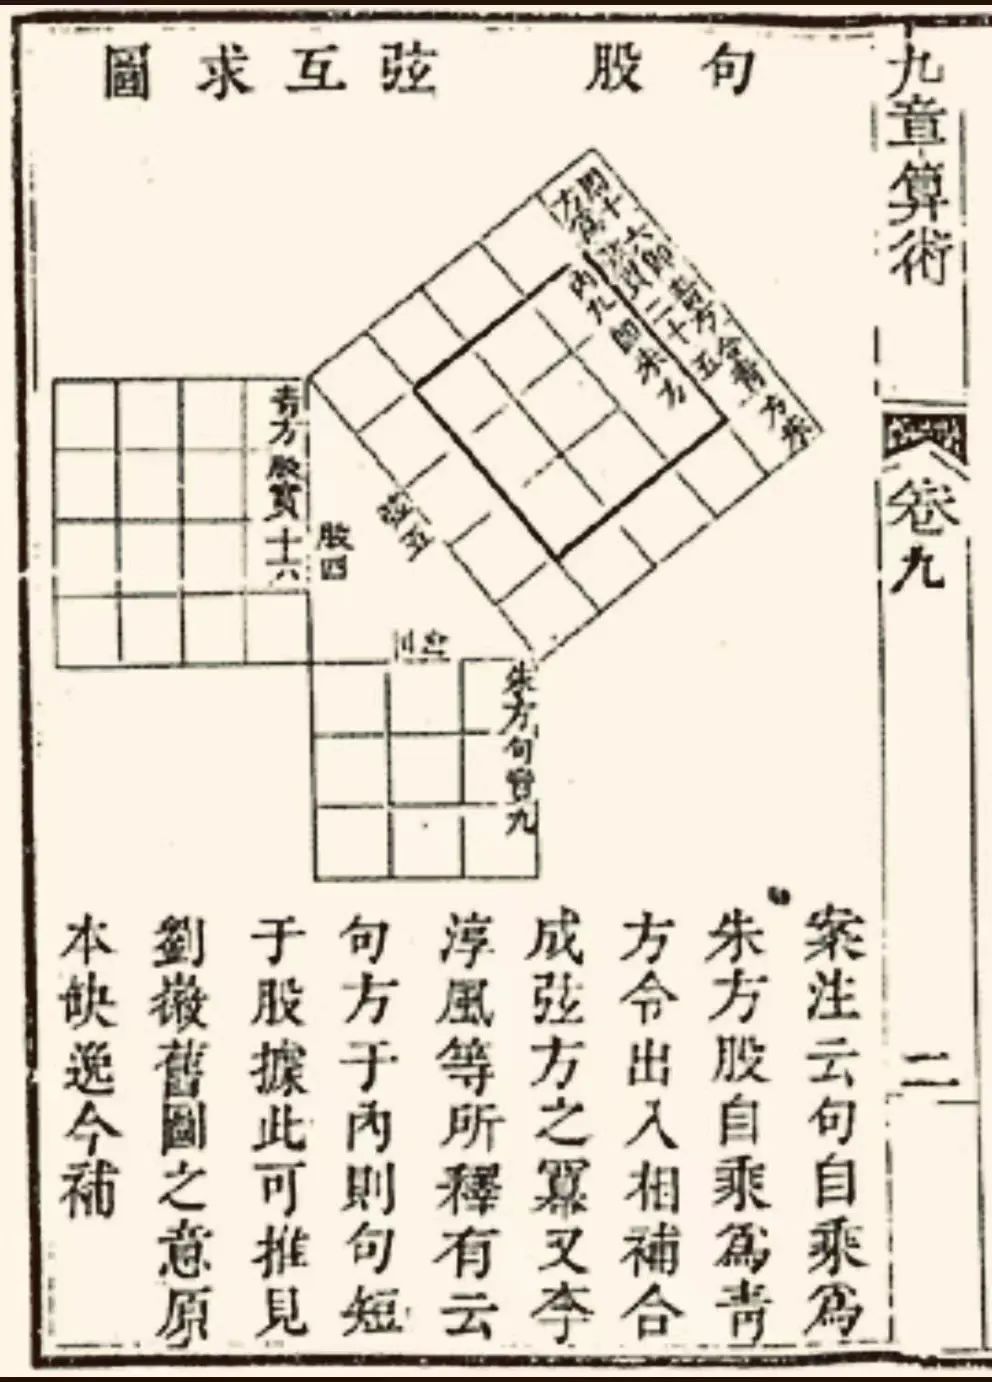 九章算術
卷九
二
句股弦互求圖
四十六即青方合青方朱
方為弦實二十五
內九即朱方
青方股實十六
股四
弦五
句三
朱方句實九
案注云句自乘爲
朱方股自乘爲靑
方令出入相補合
成弦方之冪又李
淳風等所釋有云
句方于內則句短
于股據此可推見
劉徽舊圖之意原
本缺逸今補